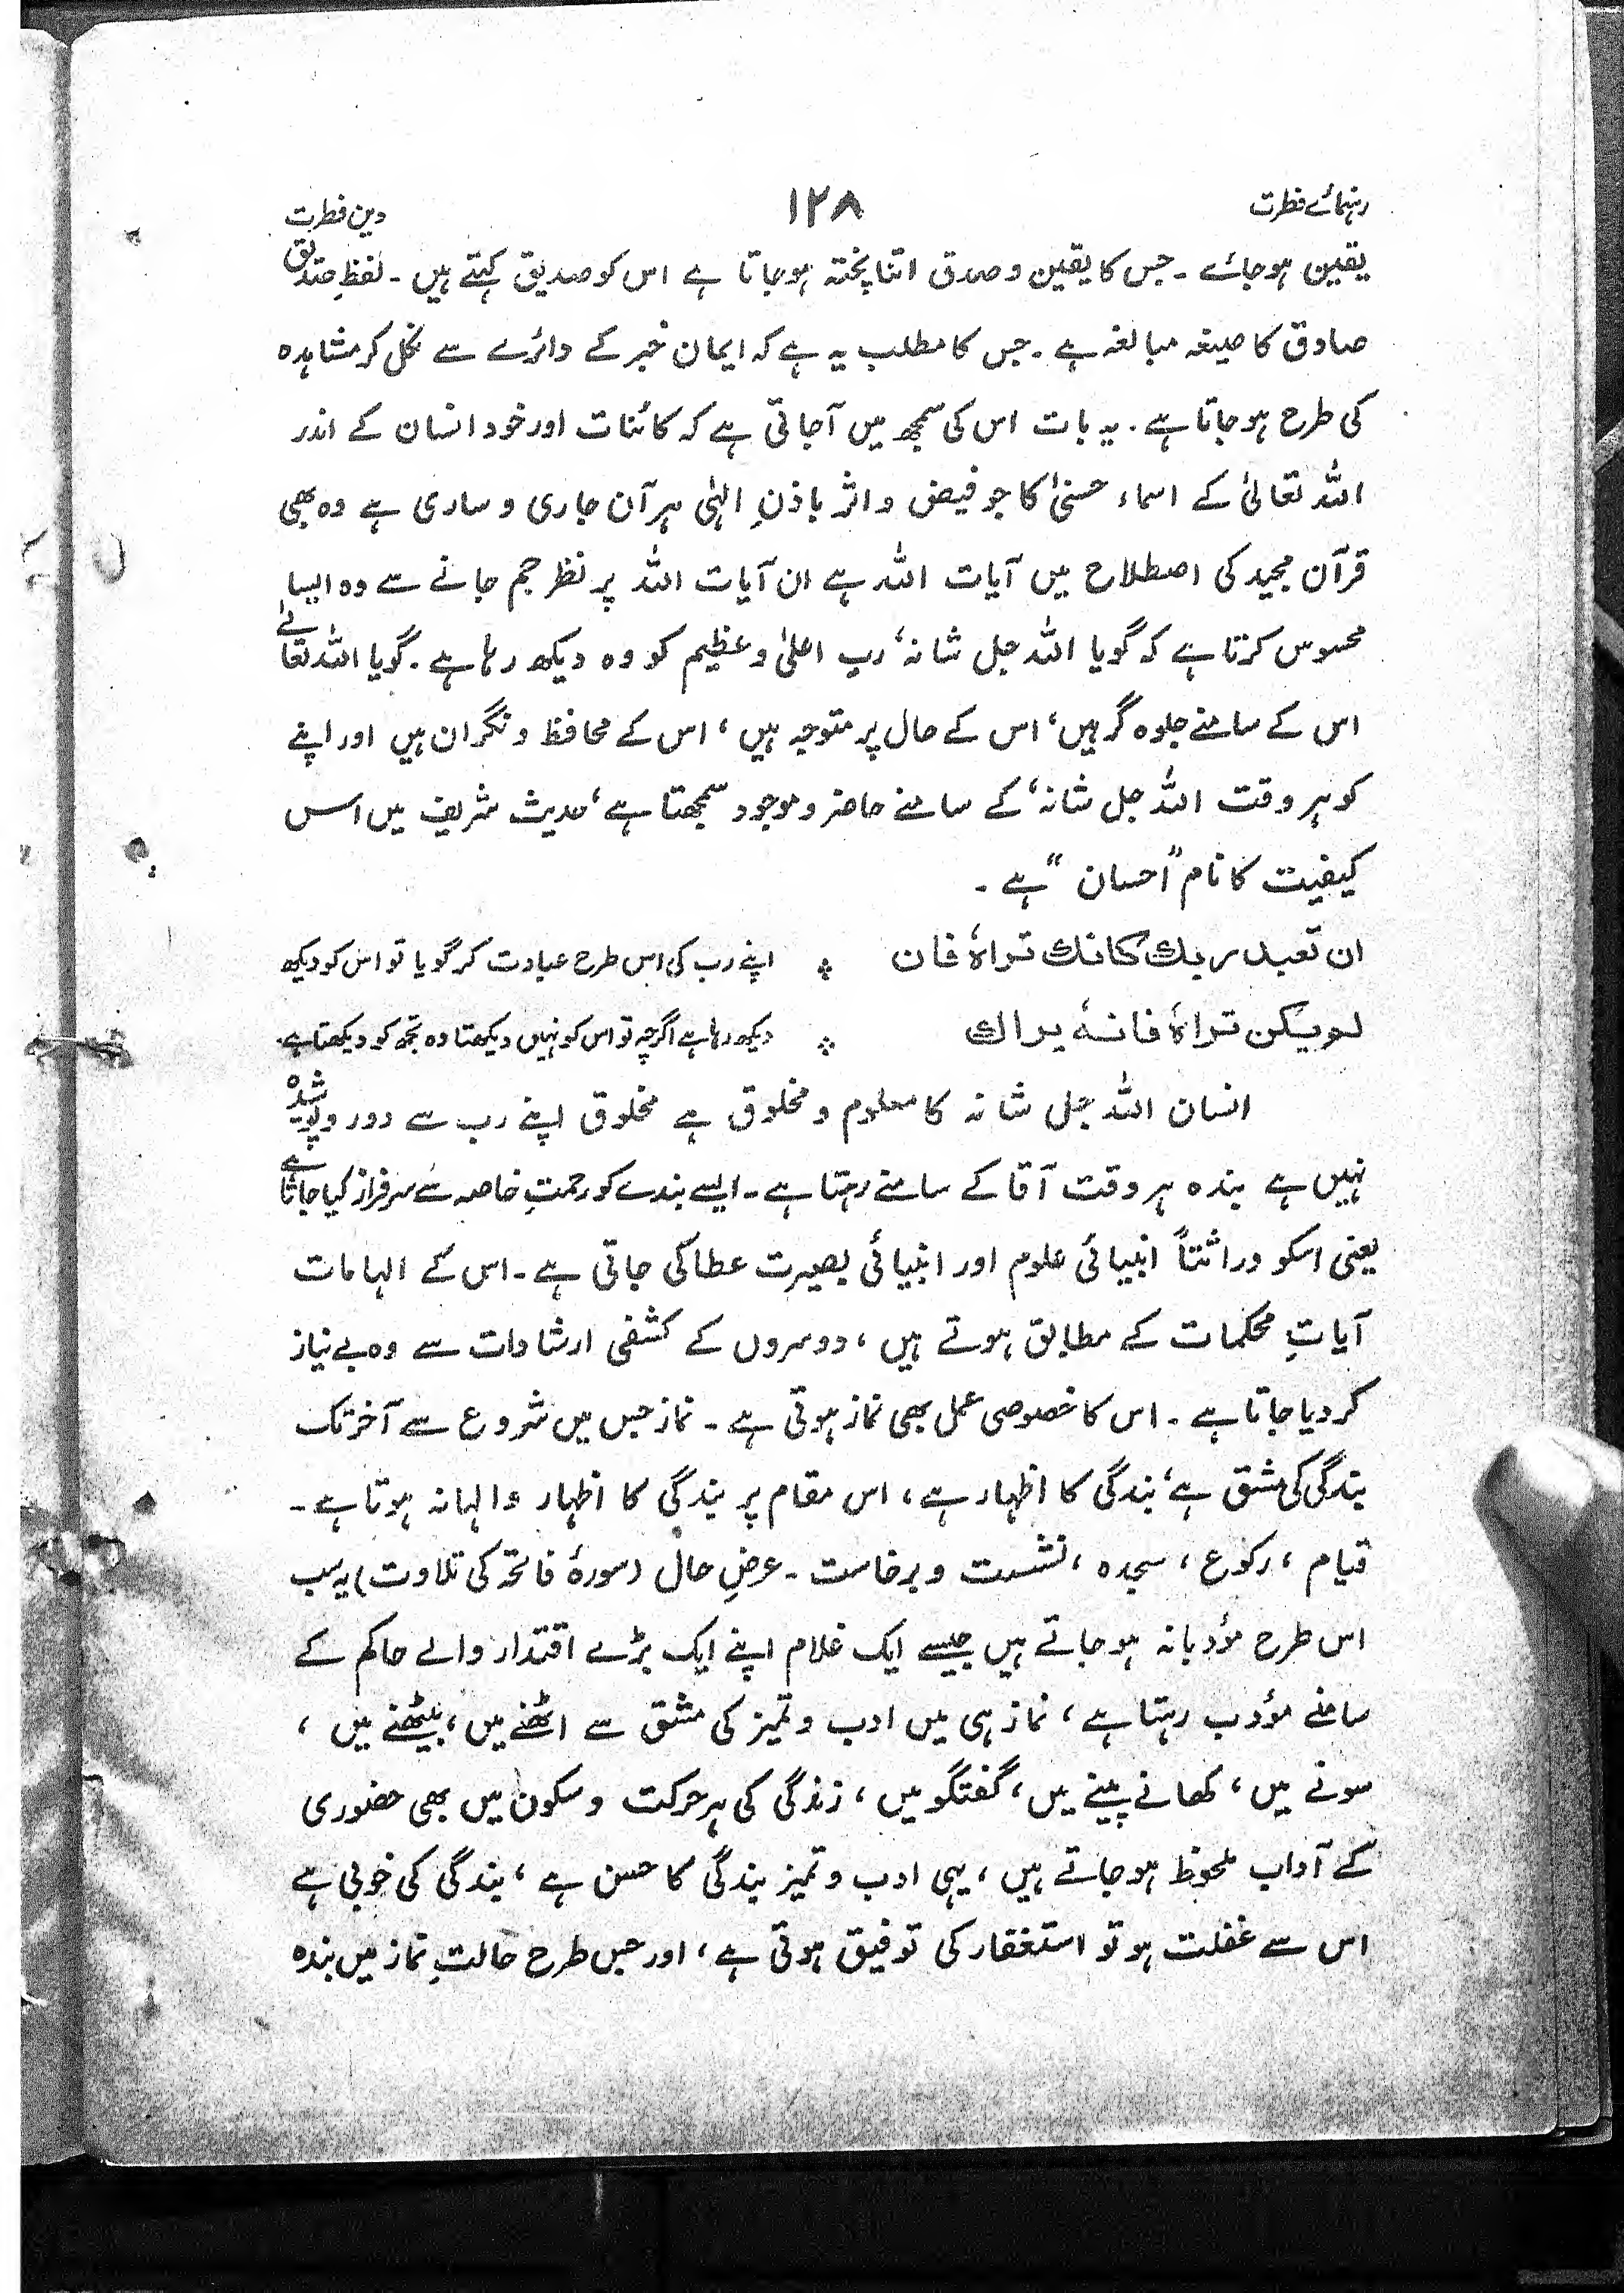 رہنمائے فطرت ۱۲۸ دین فطرت
یقین ہوجائے ۔ جس کا یقین و صدق اتنا پختہ ہوجاتا ہے اس کو صدیق کہتے ہیں ۔ لفظِ صدیق
صادق کا صیغہ مبالغہ ہے ۔ جس کا مطلب یہ ہے کہ ایمان خبر کے دائرے سے نکل کر مشاہدہ
کی طرح ہوجاتا ہے ۔ یہ بات اس کی سمجھ میں آجاتی ہے کہ کائنات اور خود انسان کے اندر
اللہ تعالیٰ کے اسماء حسنیٰ کا جو فیض و اثر باذنِ الٰہی ہر آن جاری و ساری ہے وہ بھی
قرآن مجید کی اصطلاح میں آیات اللہ ہے ان آیات اللہ پر نظر جم جانے سے وہ ایسا
محسوس کرتا ہے کہ گویا اللہ جل شانہٗ رب اعلیٰ و عظیم کو وہ دیکھ رہا ہے ۔ گویا اللہ تعالےٰ
اس کے سامنے جلوہ گر ہیں، اس کے حال پر متوجہ ہیں، اس کے محافظ و نگران ہیں اور اپنے
کو ہر وقت اللہ جل شانہٗ کے سامنے حاضر و موجود سمجھتا ہے، حدیث شریف میں اس
کیفیت کا نام "احسان" ہے ۔
ان تعبد ربك كانك تراہٗ فان ؞ اپنے رب کی اس طرح عبادت کر گویا تو اس کو دیکھ
لو یکن تراہٗ فانہٗ یراك ؞ دیکھ رہا ہے اگرچہ تو اس کو نہیں دیکھتا وہ تجھ کو دیکھتا ہے۔
انسان اللہ جل شانہ کا معلوم و مخلوق ہے مخلوق اپنے رب سے دور و پوشیدہ
نہیں ہے بندہ ہر وقت آقا کے سامنے رہتا ہے ۔ ایسے بندے کو رحمتِ خاصہ سے سرفراز کیا جاتا ہے
یعنی اسکو وراثتاً انبیائی علوم اور انبیائی بصیرت عطا کی جاتی ہے ۔ اس کے الہامات
آیاتِ محکمات کے مطابق ہوتے ہیں، دوسروں کے کشفی ارشادات سے وہ بے نیاز
کر دیا جاتا ہے ۔ اس کا خصوصی عمل بھی نماز ہوتی ہے ۔ نماز جس میں شروع سے آخر تک
بندگی کی مشق ہے، بندگی کا اظہار ہے، اس مقام پر بندگی کا اظہار والہانہ ہوتا ہے ۔
قیام، رکوع، سجدہ، نشست و برخاست ۔ عرضِ حال (سورۂ فاتحہ کی تلاوت) یہ سب
اس طرح مؤدبانہ ہوجاتے ہیں جیسے ایک غلام اپنے ایک بڑے اقتدار والے حاکم کے
سامنے مؤدب رہتا ہے، نماز ہی میں ادب و تمیز کی مشق سے اٹھنے میں، بیٹھنے میں،
سونے میں، کھانے پینے میں، گفتگو میں، زندگی کی ہر حرکت و سکون میں بھی حضوری
کے آداب ملحوظ ہوجاتے ہیں، یہی ادب و تمیز بندگی کا حسن ہے، بندگی کی خوبی ہے
اس سے غفلت ہو تو استغفار کی توفیق ہوتی ہے، اور جس طرح حالتِ نماز میں بندہ